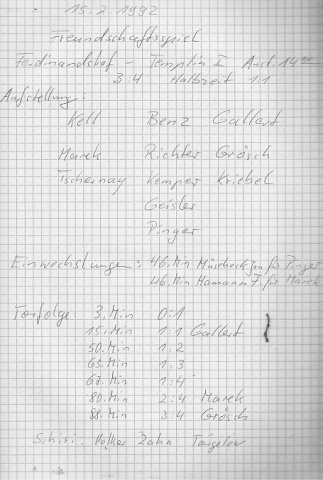 15.2.1992
Freundschaftsspiel
Ferdinandshof - Templin I Anst. 14⁰⁰
3:4 Halbzeit 1:1
Aufstellung:
Kell Benz Gallert
Marek Richter Grösch
Tschernay Kemper Kriebel
Geisler
Pinger
Einwechslungen: 46. Min Müsebeck Jan für Pinger
46. Min Hamann T. für Marek
Torfolge: 3. Min 0:1
15. Min 1:1 Gallert
50. Min 1:2
65. Min 1:3
67. Min 1:4
80. Min 2:4 Marek
88. Min 3:4 Grösch
Schiri: Volker Zahn